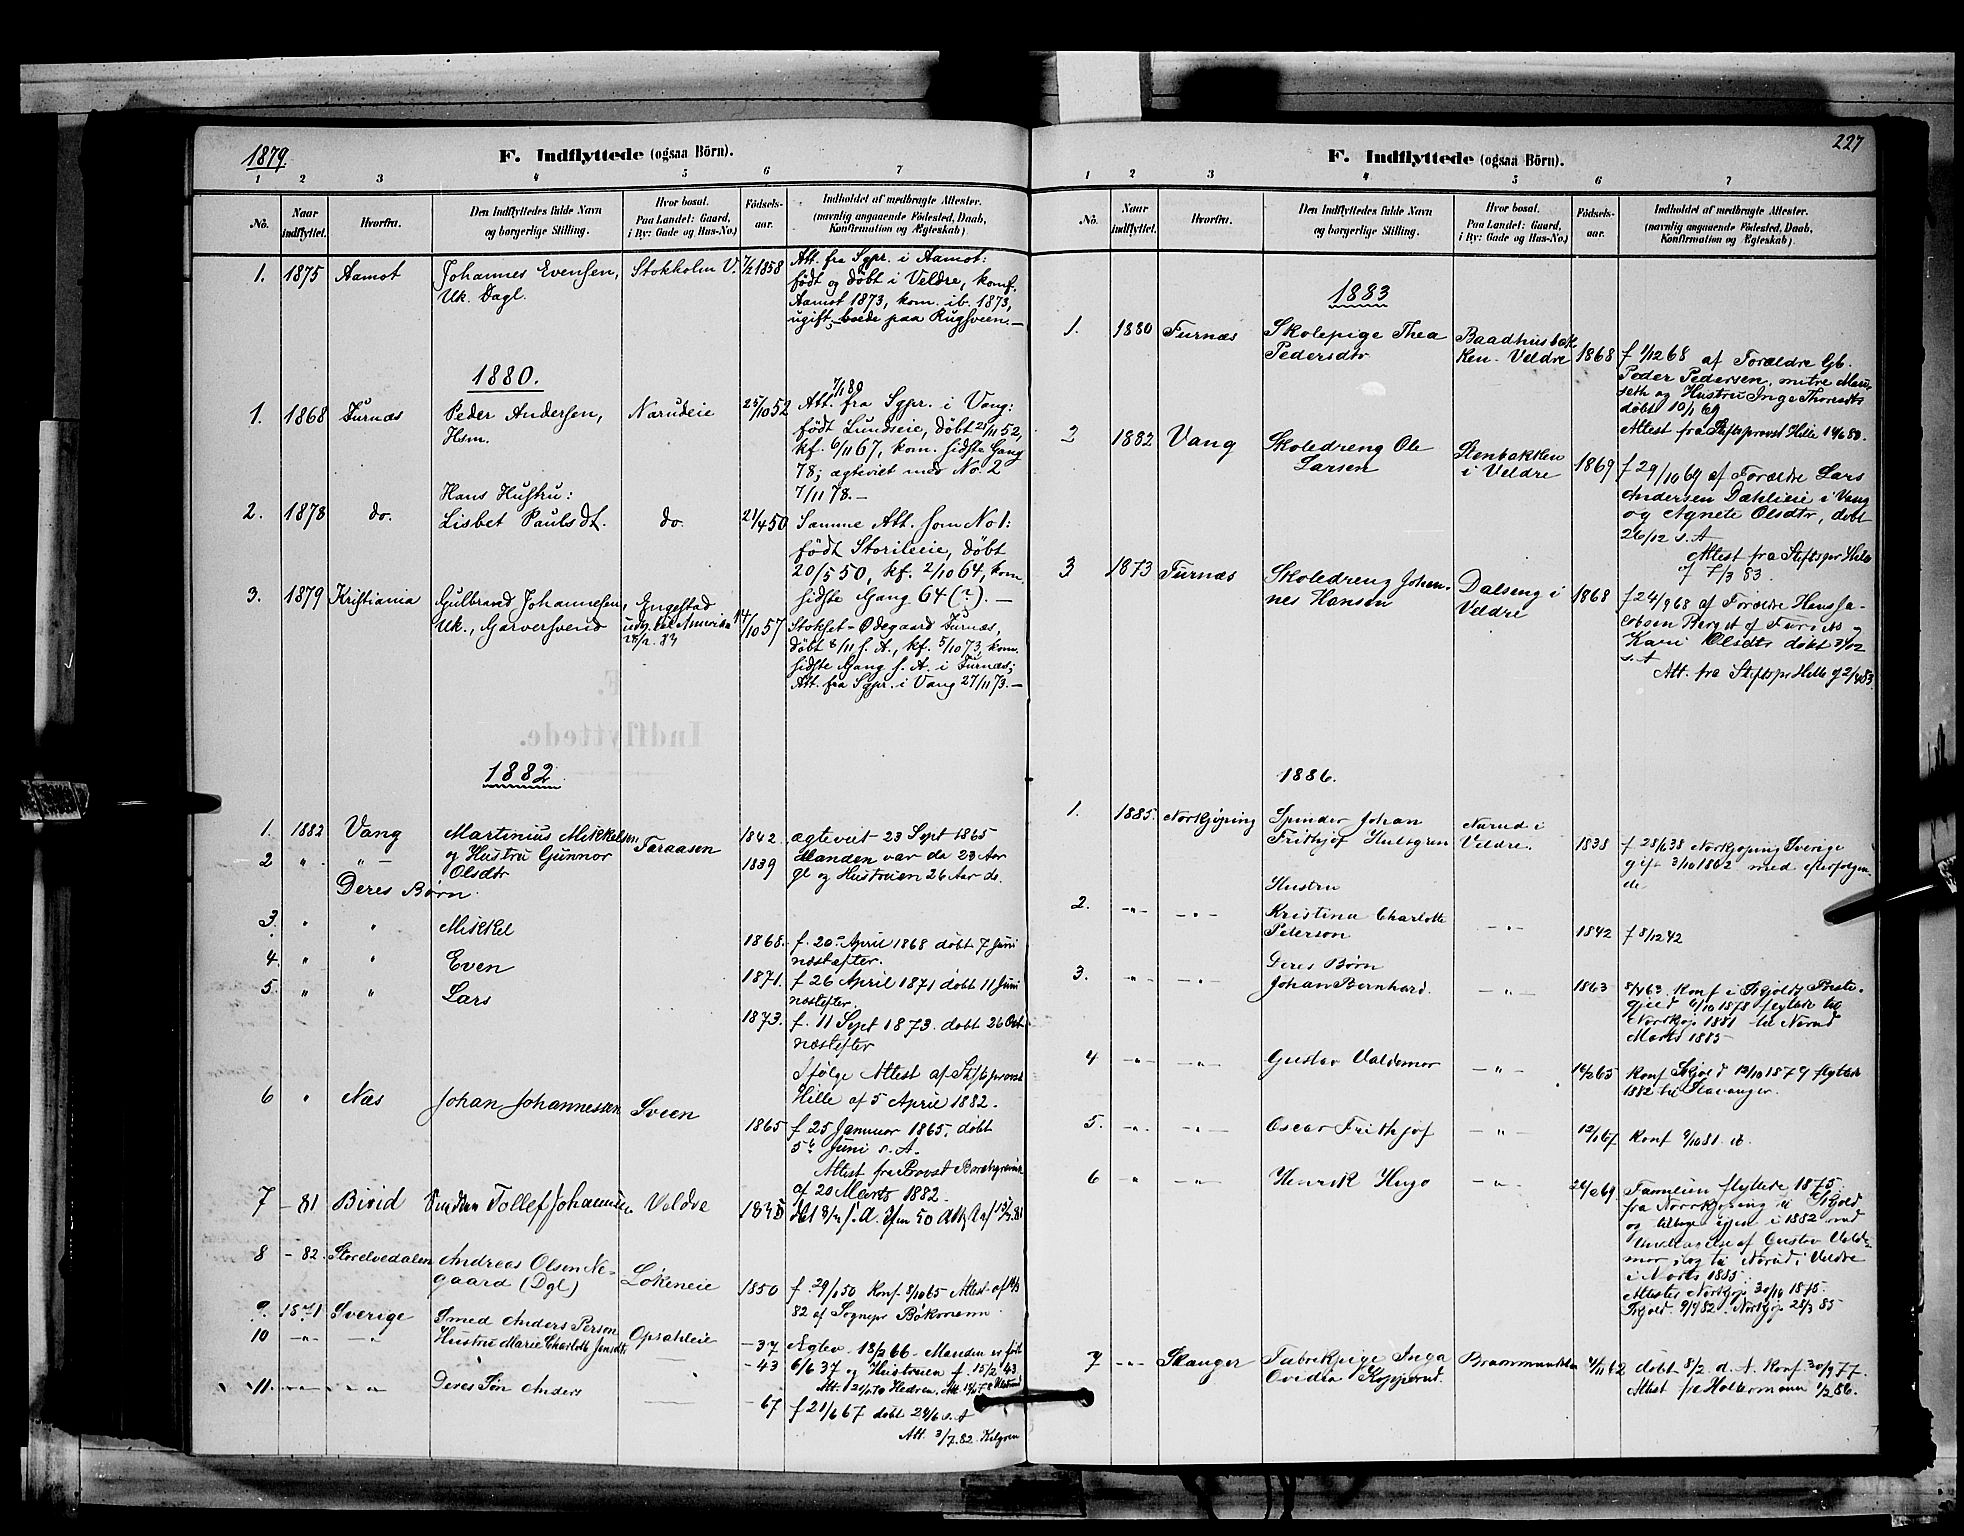 1879
F. Indflyttede (ogsaa Börn).
1 2 3 4 5 6 7
No.
Naar indflyttet.
Hvorfra.
Den Indflyttedes fulde Navn
og borgerlige Stilling.
Hvor bosat.
Paa Landet: Gaard,
i By: Gade og Hus-No)
Födsels-
aar.
Indholdet af medbragte Attester.
(navnlig angaaende Födested, Daab,
Konfirmation og Ægteskab).
1. 1875 Aamot Johannes Evensen, Stokholm V. 7/2 1858 Att. fra Sgpr. i Aamot:
Uk. Dagl. født og døbt i Veldre, konf.
Aamot 1873, kom. ib. 1873,
ugift, boede paa Rugsveen.—
1880.
1. 1868 Furnæs Peder Andersen, Narudeie 25/10 52 Att. 7/1 80 fra Sgpr. i Vang:
Hsm. født Lundseie, døbt 21/11 52,
kf. 6/11 67, kom. sidste Gang
78; ægteviet med No. 2
7/11 78.—
Hans Hustru:
2. 1878 do. Lisbet Paulsdt. do. 21/4 50 Samme Att. som No 1:
født Storileeie, døbt
20/5 50, kf. 2/10 64, kom.
sidste Gang 64 (?).—
3. 1879 Kristiania Gulbrand Johannesen, Engestad 14/10 57
Uk., Garversvend udg. til Amerika
Stokset-Ødegaard Furnæs,
døbt 8/11 s. A., kf. 5/10 73, kom.
sidste Gang s. A. i Furnæs;
Att. fra Sgpr. i Vang 27/11 73.—
1882
1. 1882 Vang Martinius Mikkelsen, 1842. ægteviet 23 Sept 1865
2 " " — og Hustru Gunnor Olsdtr Taraasen 1839 Manden var da 23 Aar
gl og Hustruen 26 Aar do.
Deres Børn.
3. " " Mikkel 1868. f. 20de April 1868 døbt 7 Juni
næstefter.
4. " " Even 1871. f 26 April 1871 døbt 11 Juni
næstefter.
5. " " Lars 1873. f. 11 Sept 1873. døbt 26 Oct
næstefter
Ifølge Attest af Stiftsprovst
Hille af 5 April 1882.
6 " Næs Johan Johannessen Sveen 1865 f 25 Januar 1865. døbt
5te Juni s. A.
Attest fra Provst
af 20 Marts 1882.
7 — 81 Birid Tollef Johannesen Veldre
8 — 82. Storelvedalen Andreas Olsen Ne-
gaard (Dgl) Løkeneie 1850 f. 29/1 50 Konf. 8/10 65 Attest af
82 af Sognepr Bøkmann.
9. 1871 Sverige Smed Anders Person
10 — " — — " — Hustru Marie Charlotte Jonsdtr Opsahleie — 37 Ægtev. 18/2 66 — Manden er født
— 43 6/6 37 og Hustruen f. 15/2 43
11. — " — — " — Deres Søn Anders — 67 f 21/6 67 døbt 24/6 s. A
Att. 3/7. 82. Kilgren
227
F. Indflyttede (ogsaa Börn).
1 2 3 4 5 6 7
No.
Naar indflyttet.
Hvorfra.
Den Indflyttedes fulde Navn
og borgerlige Stilling.
Hvor bosat.
Paa Landet: Gaard,
i By: Gade og Hus-No)
Födsels-
aar.
Indholdet af medbragte Attester.
(navnlig angaaende Födested, Daab,
Konfirmation og Ægteskab).
1883
1. 1880 Furnæs Skolepige Thea Baadhusbak
Pedersdtr ken-Veldre 1868 f 1/12 68 af Forældre Gb.
Peder Pedersen,
seth og Hustru Inge Thoresdtr
døbt 10/1 69
Attest fra Stiftsprovst Hille 14/6 80.
2 1882 Vang Skoledreng Ole Stenbakken
Larsen i Veldre 1869 f 29/10 69 af Forældre Lars
Andersen Dæhlieie i Vang
og Agnete Olsdtr, døbt
26/12 s. A
Attest fra Stiftspr Hille
af 7/3 83.
3 1873 Furnæs Skoledreng Johan- Dalseng i
nes Hansen Veldre 1868 f 24/9 68 af Forældre Hans Ja-
cobsen Berget af Furnæs og
Kari Olsdtr døbt
s. A
Att. fra Stiftspr Hille
1886.
1. 1885. Norkjöping Spinder Johan Narud i
Frithjof Hultgren Veldre. 1838 f 28/6 38 Norkøping Sverige
gift 3/10 1862 med efterfølgen-
de
Hustru
2. — " — — " — Kristina Charlotte
Peterson — " — 1842 f 8/12 42
Deres Børn
3. — " — — " — Johan Bernhard. — " — 1863 Konf i Skjold Præste-
gjeld 1878 flyttede til
Norrkjøp 1881 til Narud
Marts 1885
4 — " — — " — Gustav Valdemar — " — 14/2 65 Konf Skjold 12/10 1879 flyttede
1882 til Stavanger.
5. — " — — " — Oscar Frithjof — " — 12/1 67 Konf 9/10 81. ib.
6 — " — — " — Henrik Hugo — " — Familien flyttede 1875
fra Norrkjøping til Skjold
og tilbage igjen i 1882 med
Undtagelse af Gustav Valde-
mar og til Narud i Veldre
i Marts 1885.
Attester Norrkjøp 30/10 1875.
Skjold 9/7 82. Norrkjøp 28/3 85
7 — " — Stange Fabrikpige Inga
Ovidia Kopperud. døbt 8/2 d. A. Konf 30/9 77.
Attest fra Holtermann 1/2 86.